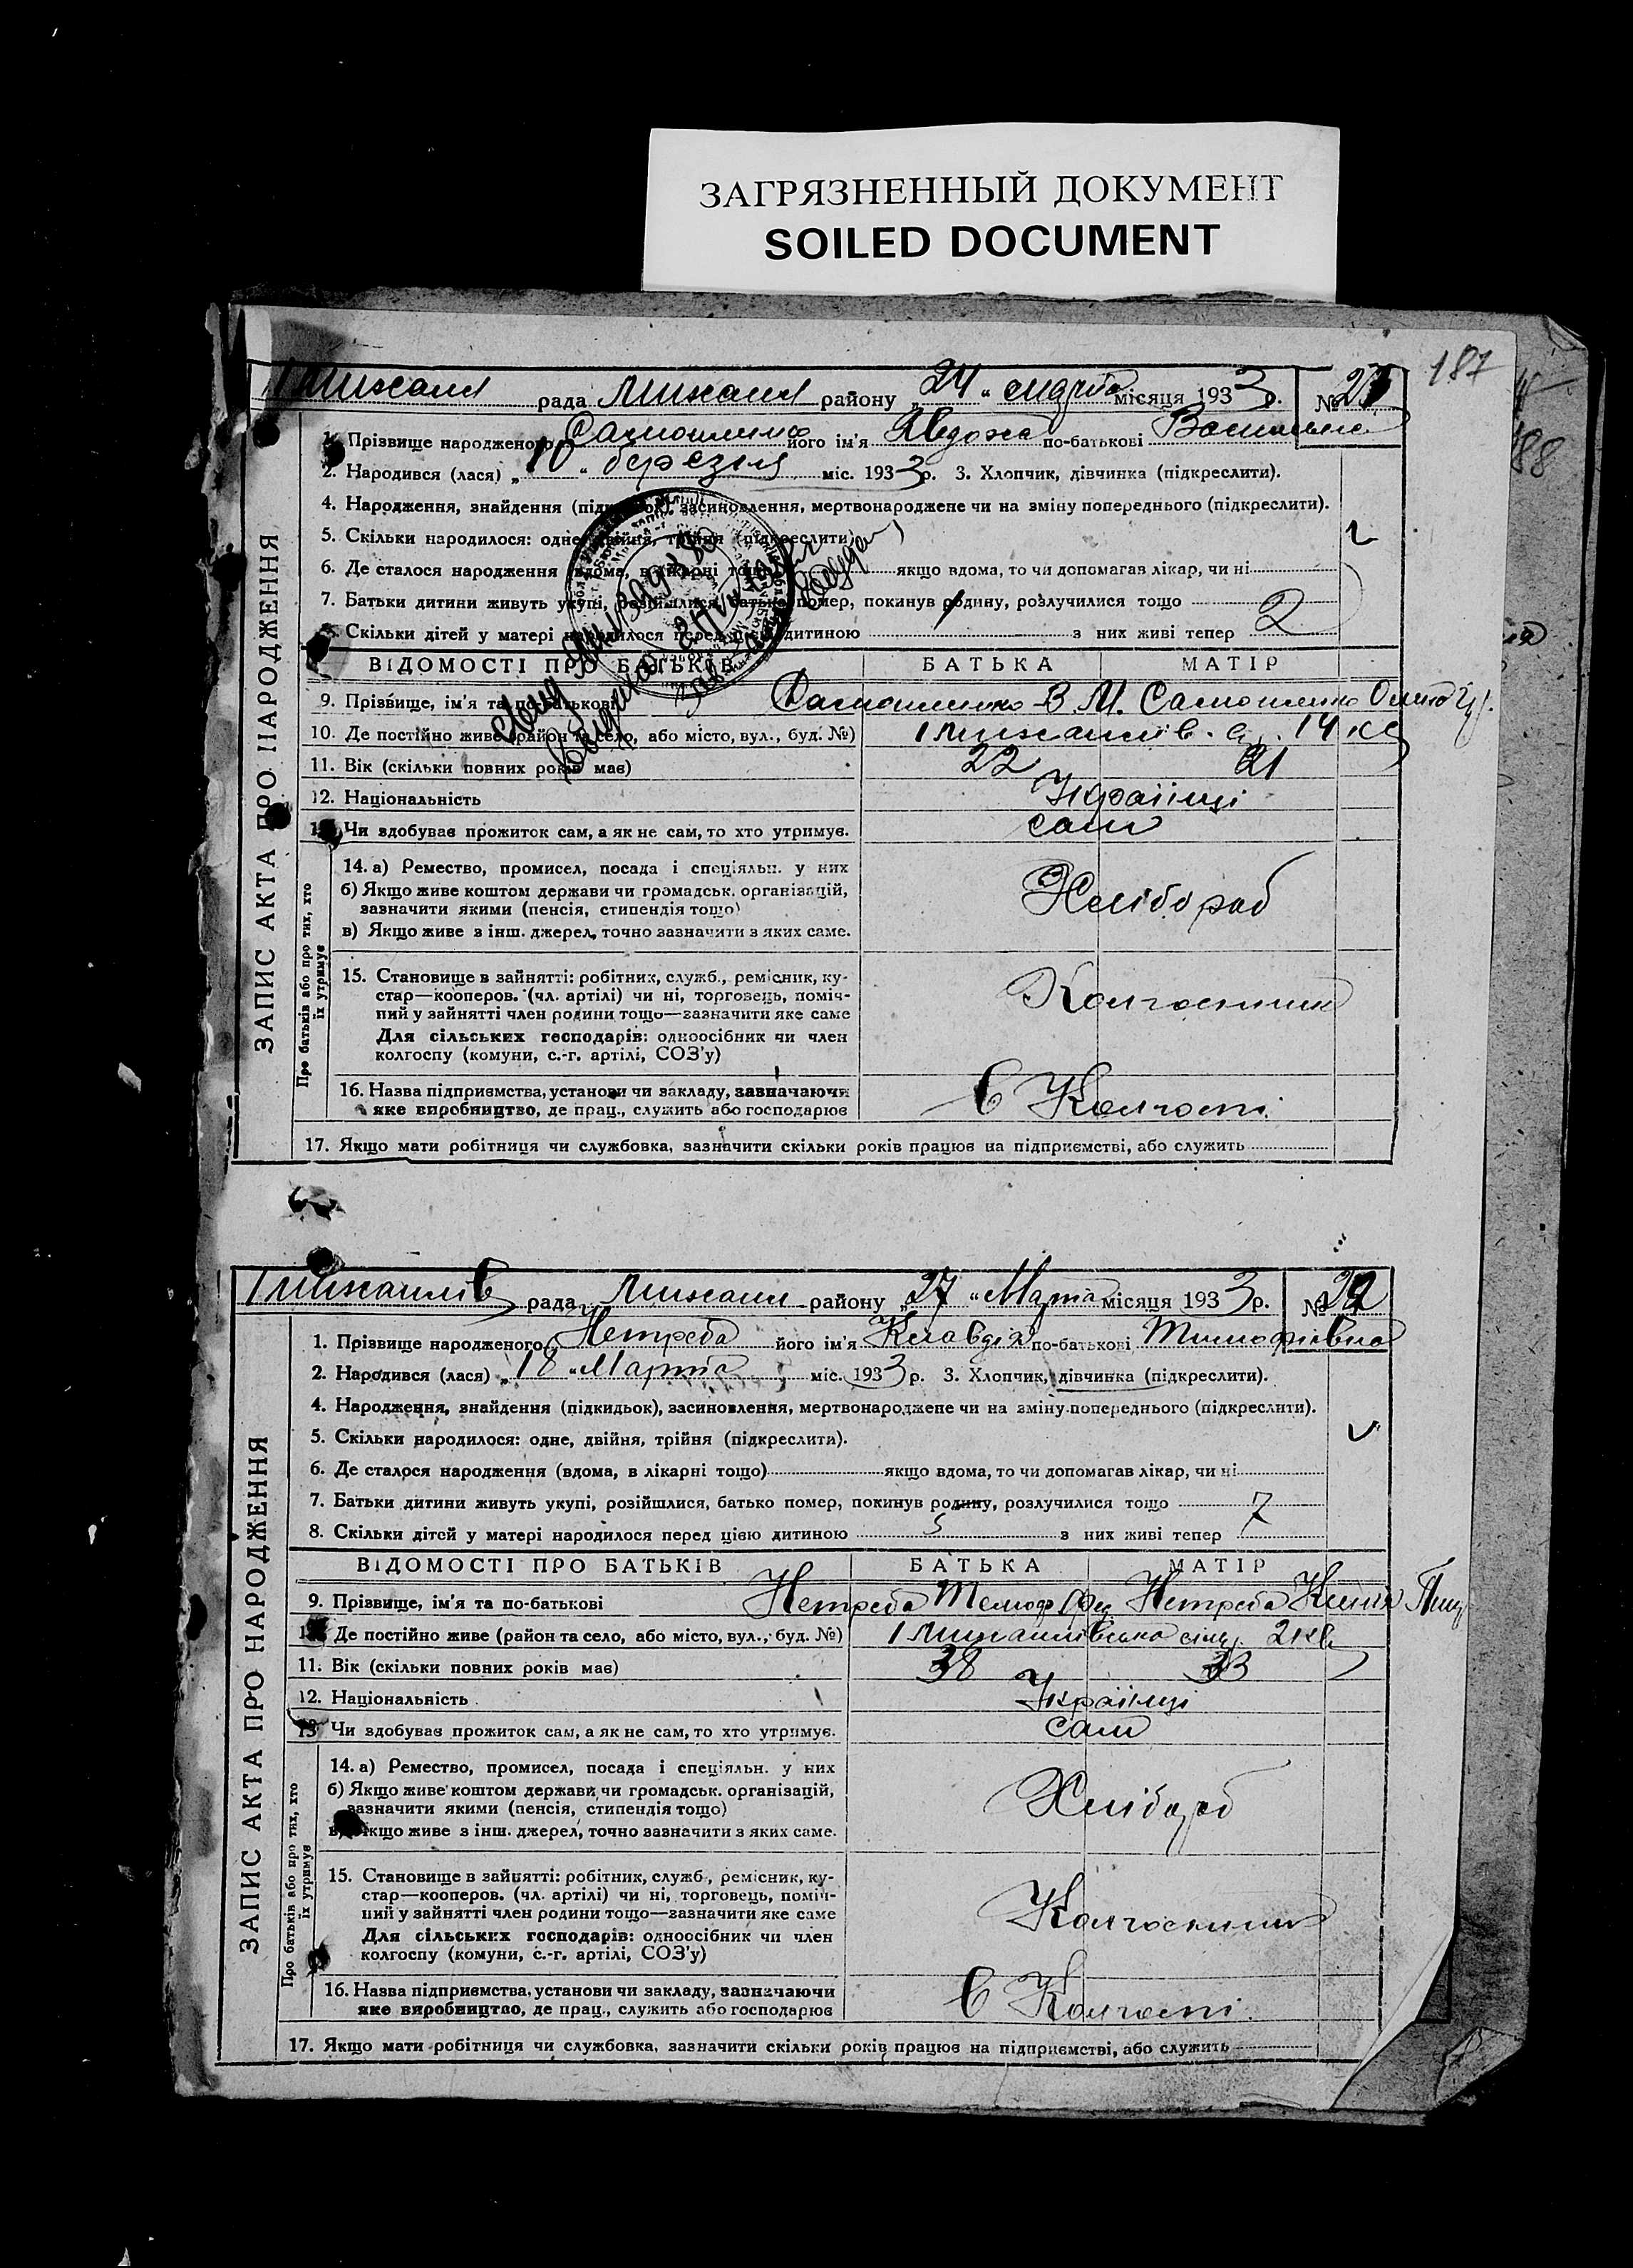 ЗАГРЯЗНЕННЫЙ ДОКУМЕНТ
SOILED DOCUMENT
187
88
рада Михаил району „24“ марта місяця 1933 р. №
1. Прізвище народженого його ім'я Явдоха по-батькові
2. Народився (лася) „10“ березіля міс. 1933 р. 3. Хлопчик, дівчинка (підкреслити).
4. Народження, знайдення засиновлення, мертвонароджене чи на зміну попереднього (підкреслити).
5. Скільки народилося: одне, двійня, трійня (підкреслити)
6. Де сталося народження якщо вдома, то чи допомагав лікар, чи ні
7. Батьки дитини живуть укупі, розійшлися, батько помер, покинув родину, розлучилися тощо
8. Скільки дітей у матері народилося перед цією дитиною з них живі тепер 2
ЗАПИС АКТА ПРО НАРОДЖЕННЯ
ВІДОМОСТІ ПРО БАТЬКІВ БАТЬКА МАТІР
9. Прізвище, ім'я та по-батькові Самошенко В. М. Самошенко
10. Де постійно живе (район та село, або місто, вул., буд. №) 14 кв
11. Вік (скільки повних років має) 22 21
12. Національність Українці
13. Чи здобуває прожиток сам, а як не сам, то хто утримує. сам
Про батьків або про тих, хто їх утримує
14. а) Ремество, промисел, посада і спеціяльн. у них
б) Якщо живе коштом держави чи громадськ. організацій,
зазначити якими (пенсія, стипендія тощо)
Хлібороб
в) Якщо живе з інш. джерел, точно зазначити з яких саме.
15. Становище в зайнятті: робітник, служб., ремісник, ку-
стар—кооперов. (чл. артілі) чи ні, торговець, поміч-
ний у зайнятті член родини тощо—зазначити яке саме
Колгоспник
Для сільських господарів: одноосібник чи член
колгоспу (комуни, с.-г. артілі, СОЗ'у)
16. Назва підприємства, установи чи закладу, зазначаючи
яке виробництво, де прац., служить або господарює
в Колгоспі
17. Якщо мати робітниця чи службовка, зазначити скільки років працює на підприємстві, або служить
рада Михаил району „27“ Марта місяця 1933 р. № 22
1. Прізвище народженого Нетреба його ім'я Клавдія по-батькові Тимофіївна
2. Народився (лася) „18“ Марта міс. 1933 р. 3. Хлопчик, дівчинка (підкреслити).
4. Народження, знайдення (підкидьок), засиновлення, мертвонароджене чи на зміну попереднього (підкреслити).
5. Скільки народилося: одне, двійня, трійня (підкреслити).
6. Де сталося народження (вдома, в лікарні тощо) якщо вдома, то чи допомагав лікар, чи ні
7. Батьки дитини живуть укупі, розійшлися, батько помер, покинув родину, розлучилися тощо
8. Скільки дітей у матері народилося перед цією дитиною 5 з них живі тепер 7
ЗАПИС АКТА ПРО НАРОДЖЕННЯ
ВІДОМОСТІ ПРО БАТЬКІВ БАТЬКА МАТІР
9. Прізвище, ім'я та по-батькові Нетреба Нетреба
10. Де постійно живе (район та село, або місто, вул., буд. №) 2 кв
11. Вік (скільки повних років має) 38 33
12. Національність Українці
13. Чи здобуває прожиток сам, а як не сам, то хто утримує. сам
Про батьків або про тих, хто їх утримує
14. а) Ремество, промисел, посада і спеціяльн. у них
б) Якщо живе коштом держави чи громадськ. організацій,
зазначити якими (пенсія, стипендія тощо)
Хлібороб
в) Якщо живе з інш. джерел, точно зазначити з яких саме.
15. Становище в зайнятті: робітник, служб., ремісник, ку-
стар—кооперов. (чл. артілі) чи ні, торговець, поміч-
ний у зайнятті член родини тощо—зазначити яке саме
Колгоспник
Для сільських господарів: одноосібник чи член
колгоспу (комуни, с.-г. артілі, СОЗ'у)
16. Назва підприємства, установи чи закладу, зазначаючи
яке виробництво, де прац., служить або господарює
в Колгоспі
17. Якщо мати робітниця чи службовка, зазначити скільки років працює на підприємстві, або служить